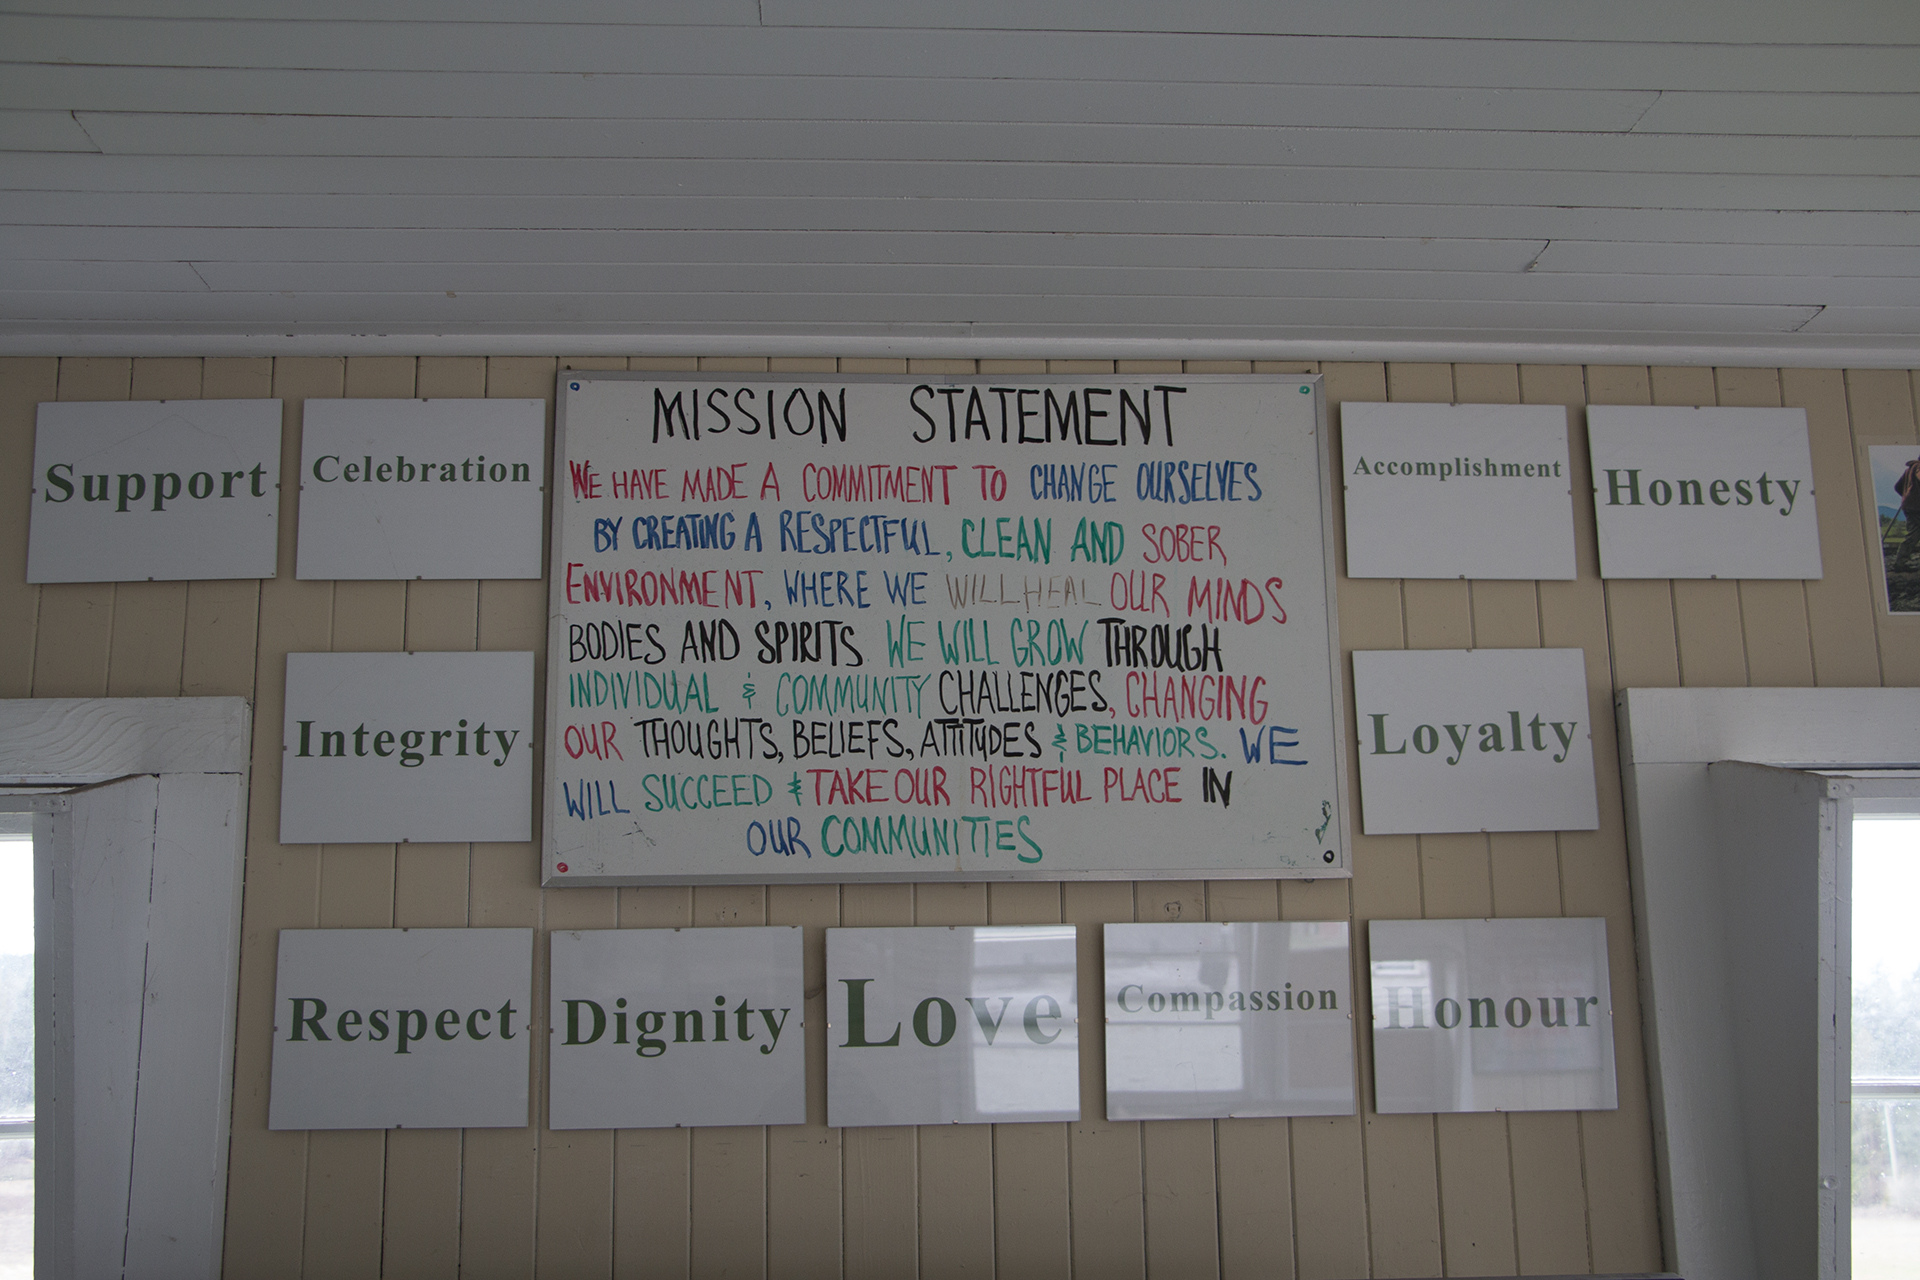 Support
Celebration
MISSION STATEMENT
WE HAVE MADE A COMMITMENT TO CHANGE OURSELVES
BY CREATING A RESPECTFUL, CLEAN AND SOBER
ENVIRONMENT, WHERE WE WILL HEAL OUR MINDS
BODIES AND SPIRITS WE WILL GROW THROUGH
INDIVIDUAL & COMMUNITY CHALLENGES, CHANGING
OUR THOUGHTS, BELIEFS, ATTITUDES & BEHAVIORS. WE
WILL SUCCEED & TAKE OUR RIGHTFUL PLACE IN
OUR COMMUNITIES
Accomplishment
Honesty
Integrity
Loyalty
Respect
Dignity
Love
Compassion
Honour